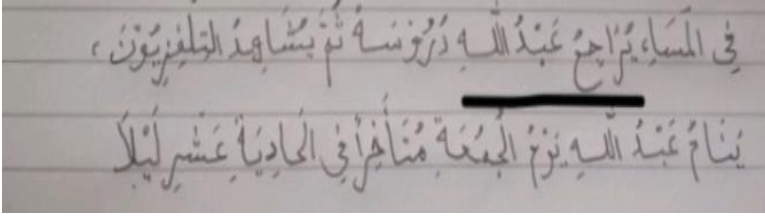 فِي الْمَسَاءِ، يُرَاجِعُ عَبْدُ اللهِ دُرُوْسَهُ ثُمَّ يُشَاهِدُ التِلفِزِيُوْنَ ،
يَنَامُ عَبْدُ اللهِ يَوْمُ الْجُمُعَةِ مُتَأَخِّرًا فِي الْحَادِيَةَ عَشْرِ لَيْلًا